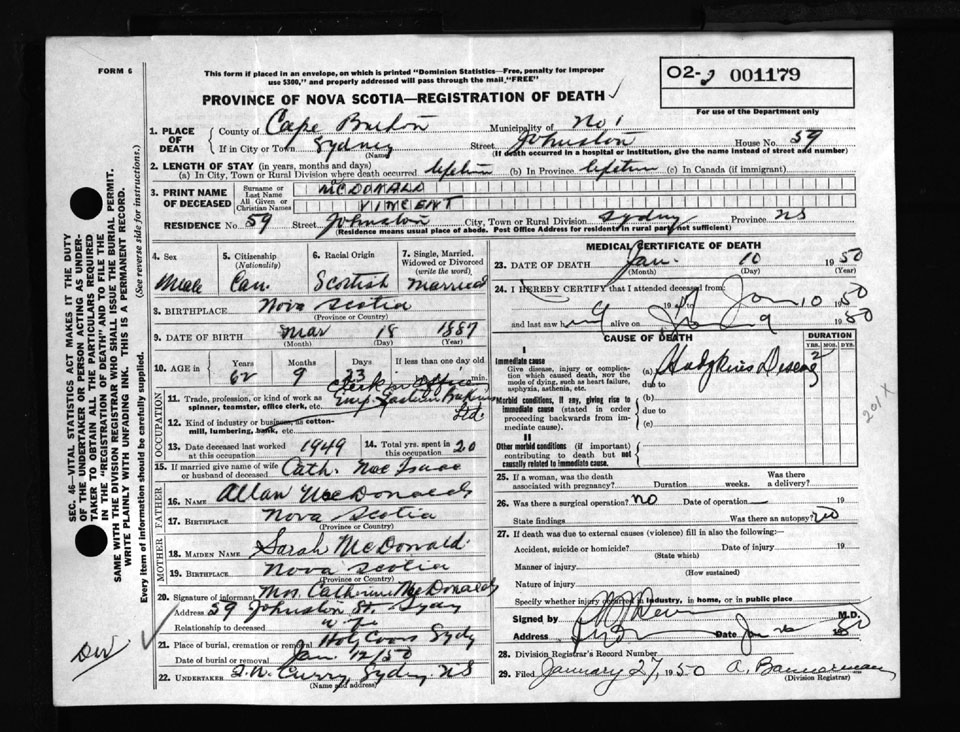 FORM 6
This form if placed in an envelope, on which is printed "Dominion Statistics—Free, penalty for improper
use $300," and properly addressed will pass through the mail "FREE"
O2- 001179
PROVINCE OF NOVA SCOTIA—REGISTRATION OF DEATH ✓
For use of the Department only
1. PLACE OF DEATH { County of Cape Breton Municipality of No 1
If in City or Town Sydney (Name) Street Johnston House No. 59
(If death occurred in a hospital or institution, give the name instead of street and number)
2. LENGTH OF STAY (in years, months and days)
(a) In City, Town or Rural Division where death occurred lifetime (b) In Province lifetime (c) In Canada (if immigrant)
3. PRINT NAME OF DECEASED { Surname or Last Name MCDONALD
All Given or Christian Names VINCENT
RESIDENCE No. 59 Street Johnston City, Town or Rural Division Sydney Province NS
(Residence means usual place of abode. Post Office Address for residents in rural parts not sufficient)
4. Sex Male
5. Citizenship (Nationality) Can.
6. Racial Origin Scottish
7. Single, Married, Widowed or Divorced (write the word) Married
8. BIRTHPLACE Nova Scotia
(Province or Country)
9. DATE OF BIRTH Mar 18 1887
(Month) (Day) (Year)
10. AGE in { Years 62 Months 9 Days 23 If less than one day old
hrs. min.
OCCUPATION
11. Trade, profession, or kind of work as spinner, teamster, office clerk, etc. Clerk in Office
Emp. Eastern Bakeries Ltd.
12. Kind of industry or business, as cotton-mill, lumbering, bank, etc.
13. Date deceased last worked at this occupation 1949
14. Total yrs. spent in this occupation 20
15. If married give name of wife or husband of deceased Cath. Mac Isaac
FATHER
16. NAME Allan MacDonald
17. BIRTHPLACE Nova Scotia
(Province or Country)
MOTHER
18. MAIDEN NAME Sarah McDonald
19. BIRTHPLACE Nova Scotia
(Province or Country)
20. Signature of informant Mrs. Catherine MacDonald
Address 59 Johnston St. Sydney
Relationship to deceased wife
21. Place of burial, cremation or removal Holy Cross Sydney
Date of burial or removal Jan. 12/50
22. UNDERTAKER Curry, Sydney. NS
(Name and address)
MEDICAL CERTIFICATE OF DEATH
23. DATE OF DEATH Jan. 10 1950
(Month) (Day) (Year)
24. I HEREBY CERTIFY that I attended deceased from:
19 to Jan 10 1950
and last saw h alive on 9 1950
CAUSE OF DEATH
DURATION
YRS. MOS. DYS.
I
Immediate cause
Give disease, injury or complication which caused death, not the mode of dying, such as heart failure, asphyxia, asthenia, etc.
(a) Hodgkin's Disease 2
due to
Morbid conditions, if any, giving rise to immediate cause (stated in order proceeding backwards from immediate cause).
(b)
due to
(c)
201 X
II
Other morbid conditions (if important) contributing to death but not causally related to immediate cause.
25. If a woman, was the death associated with pregnancy? Duration weeks. Was there a delivery?
26. Was there a surgical operation? no Date of operation 19
State findings Was there an autopsy? no
27. If death was due to external causes (violence) fill in also the following:
Accident, suicide or homicide? (State which) Date of injury 19
Manner of injury
(How sustained)
Nature of injury
Specify whether injury occurred in industry, in home, or in public place
Signed by M.D.
Address Date Jan 1950
28. Division Registrar's Record Number
29. Filed January 27, 1950 A. Bannerman
(Division Registrar)
SEC. 46—VITAL STATISTICS ACT MAKES IT THE DUTY
OF THE UNDERTAKER OR PERSON ACTING AS UNDERTAKER TO OBTAIN ALL THE PARTICULARS REQUIRED
IN THE "REGISTRATION OF DEATH" AND TO FILE THE
SAME WITH THE DIVISION REGISTRAR WHO SHALL ISSUE THE BURIAL PERMIT.
WRITE PLAINLY WITH UNFADING INK. THIS IS A PERMANENT RECORD.
Every item of information should be carefully supplied. (See reverse side for instructions.)